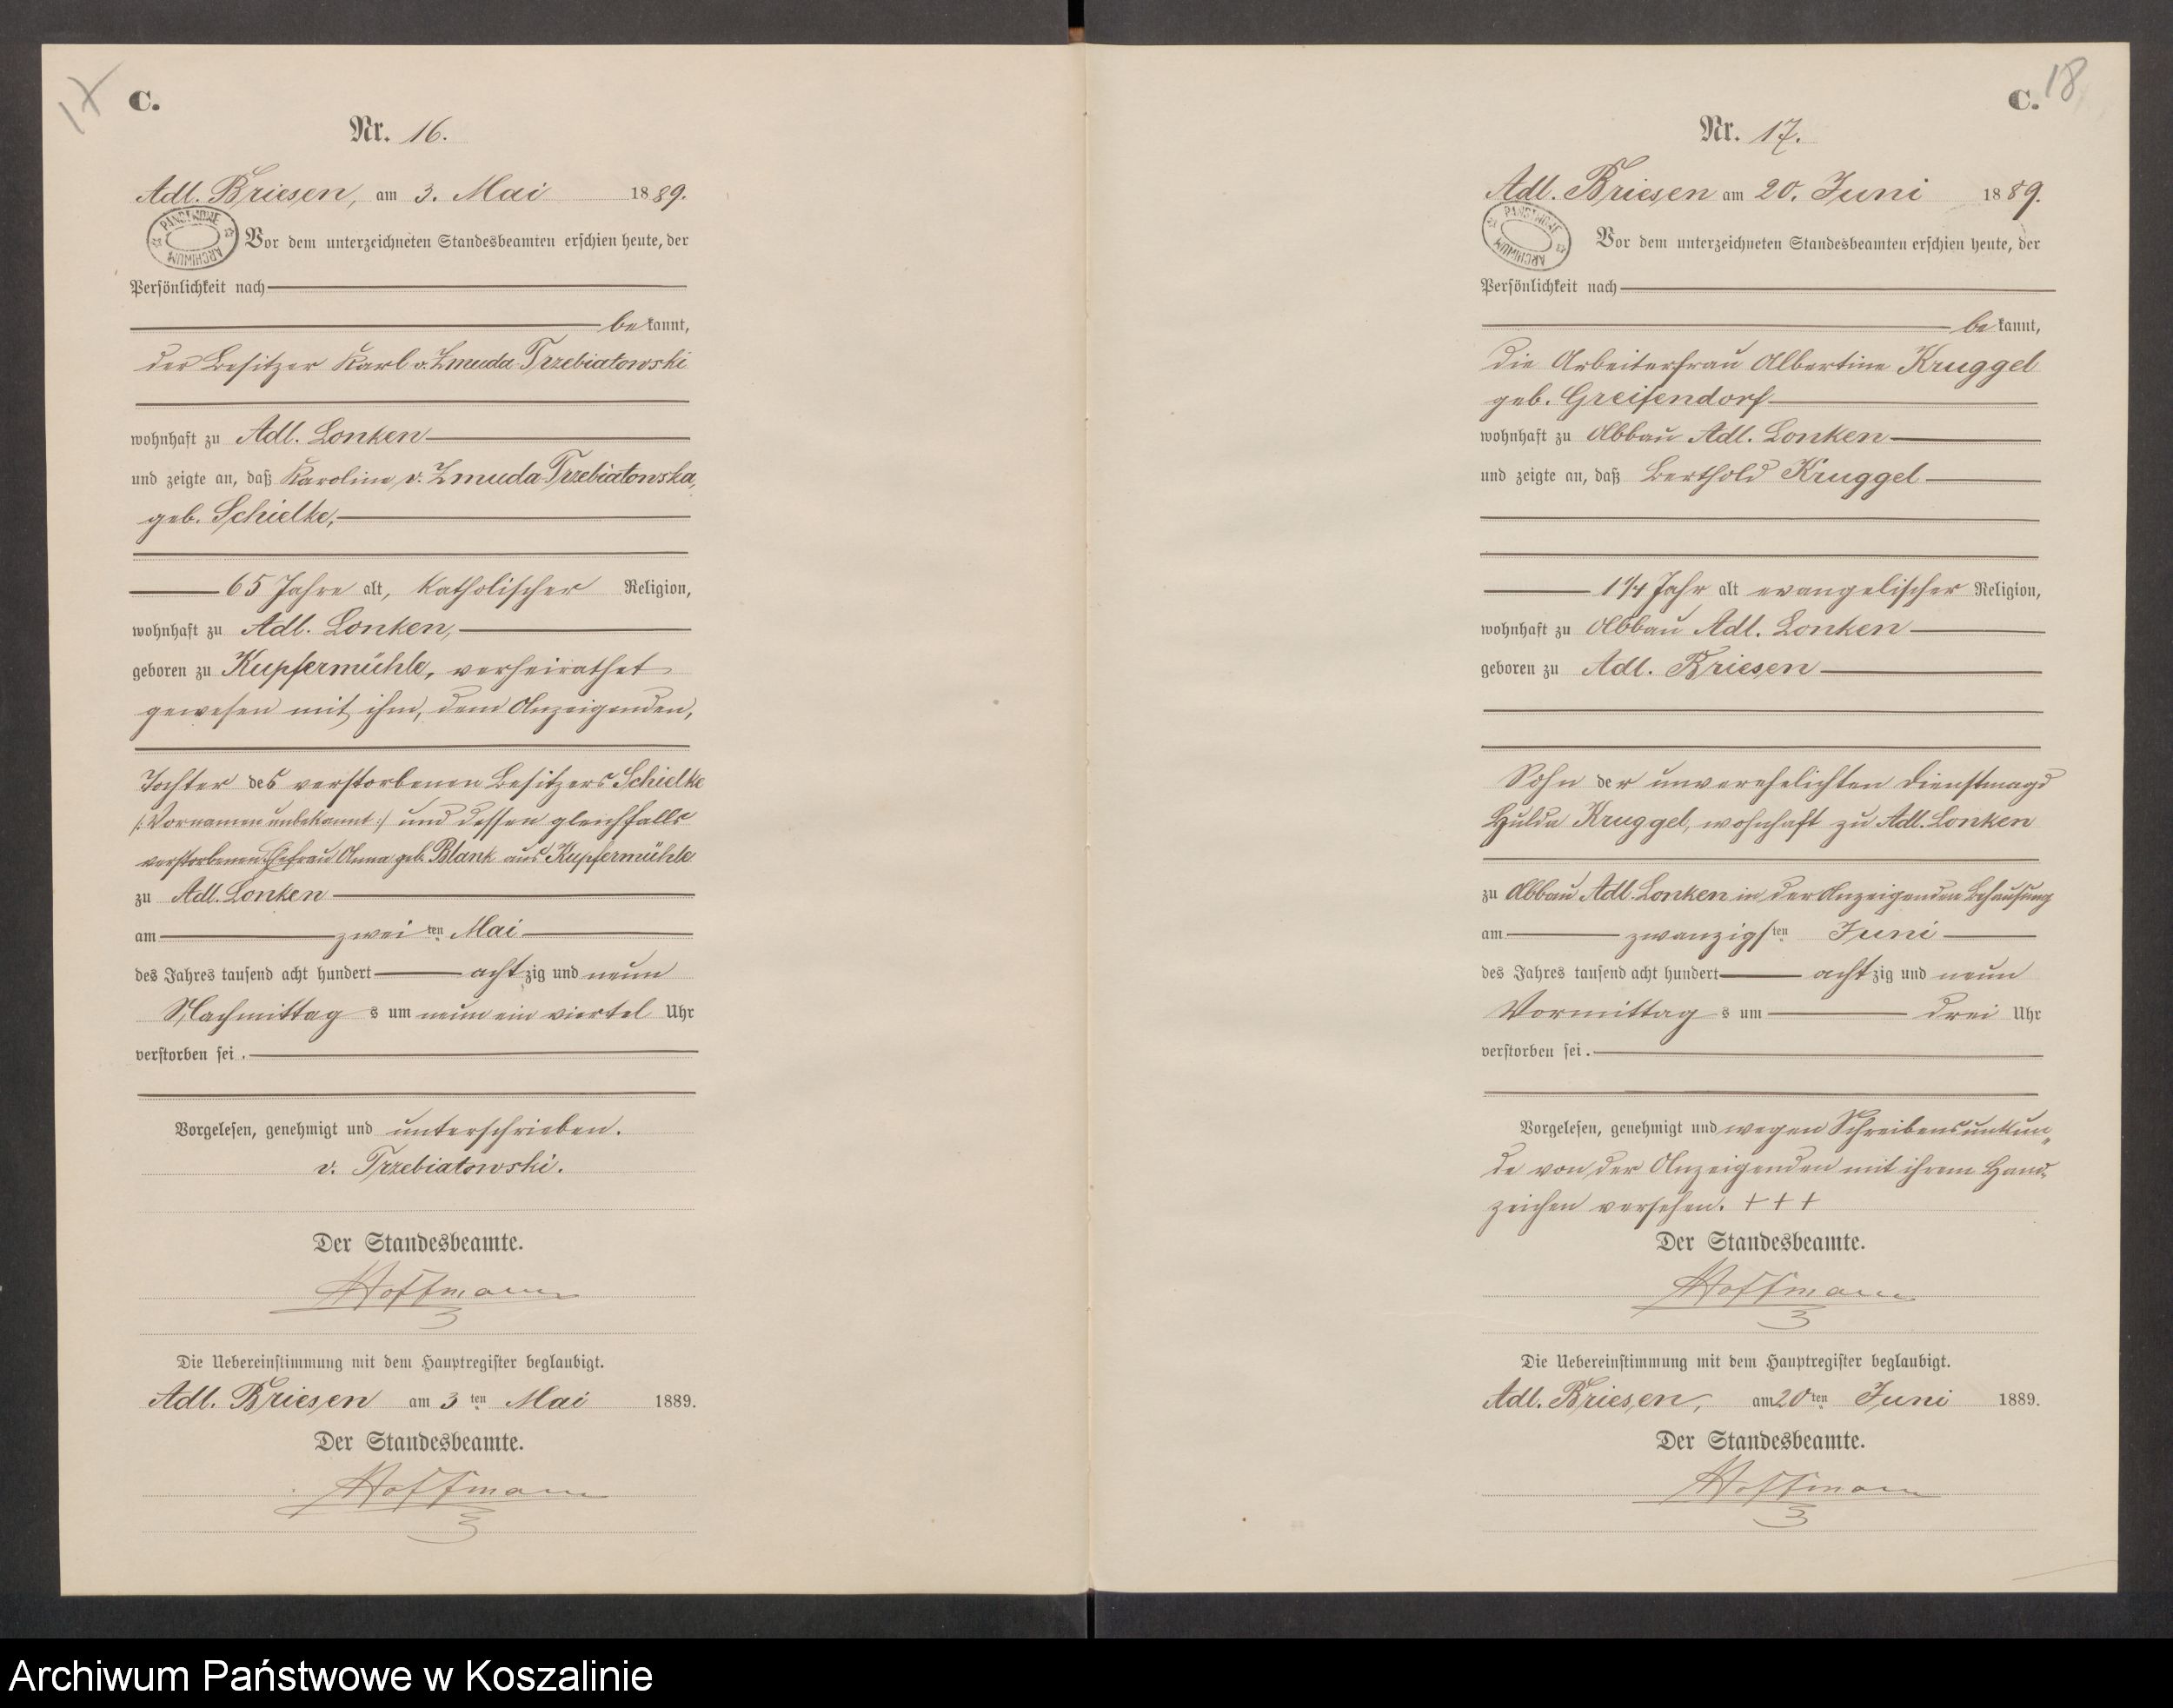 17
C.
Nr. 16.
Adl. Briesen, am 3. Mai 1889.
PAŃSTWOWE ARCHIWUM
Vor dem unterzeichneten Standesbeamten erschien heute, der
Persönlichkeit nach
bekannt,
der Besitzer Karl v. Zmuda Trzebiatowski
wohnhaft zu Adl. Lonken
und zeigte an, daß Karoline v. Zmuda Trzebiatowska,
geb. Schielke,
65 Jahre alt, katholischer Religion,
wohnhaft zu Adl. Lonken,
geboren zu Kupfermühle, verheirathet
gewesen mit ihm, dem Anzeigenden,
Tochter des verstorbenen Besitzers Schielke
/: Vornamen unbekannt :/ und dessen gleichfalls
verstorbenen Ehefrau Anna geb. Blank aus Kupfermühle
zu Adl. Lonken
am zweiten Mai
des Jahres tausend acht hundert achtzig und neun
Nachmittags um neun ein viertel Uhr
verstorben sei.
Vorgelesen, genehmigt und unterschrieben.
v. Trzebiatowski.
Der Standesbeamte.
Hoffmann
Die Uebereinstimmung mit dem Hauptregister beglaubigt.
Adl. Briesen am 3ten Mai 1889.
Der Standesbeamte.
Hoffmann
18
C.
Nr. 17.
Adl. Briesen am 20. Juni 1889.
PAŃSTWOWE ARCHIWUM
Vor dem unterzeichneten Standesbeamten erschien heute, der
Persönlichkeit nach
bekannt,
die Arbeiterfrau Albertine Kruggel
geb. Greifendorf
wohnhaft zu Abbau Adl. Lonken
und zeigte an, daß Berthold Kruggel
1 1/4 Jahr alt evangelischer Religion,
wohnhaft zu Abbau Adl. Lonken
geboren zu Adl. Briesen
Sohn der unverehelichten Dienstmagd
Hulda Kruggel, wohnhaft zu Adl. Lonken
zu Abbau Adl. Lonken in der Anzeigenden Behausung
am zwanzigsten Juni
des Jahres tausend acht hundert achtzig und neun
Vormittags um drei Uhr
verstorben sei.
Vorgelesen, genehmigt und wegen Schreibensunkun„
de von der Anzeigenden mit ihrem Hand„
zeichen versehen. + + +
Der Standesbeamte.
Hoffmann
Die Uebereinstimmung mit dem Hauptregister beglaubigt.
Adl. Briesen, am 20ten Juni 1889.
Der Standesbeamte.
Hoffmann
Archiwum Państwowe w Koszalinie